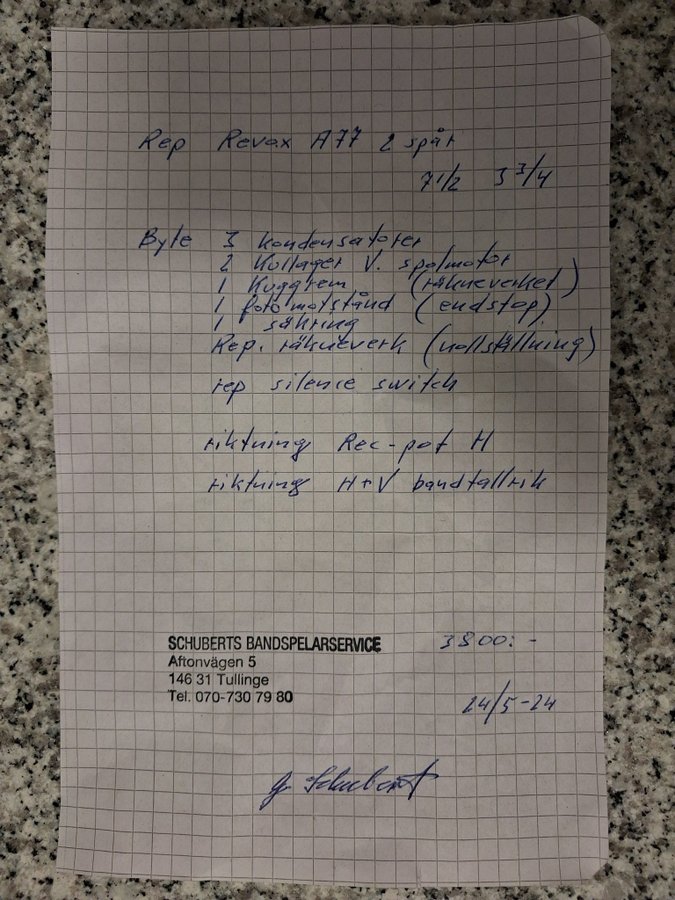 Rep Revox A77 2 spår
7 1/2 3 3/4
Byte 3 kondensatorer
2 Kullager V. spolmotor
1 Kuggrem (räkneverket)
1 fotomotstånd (endstop)
1 säkring
Rep. räkneverk (nollställning)
rep silence switch
riktning Rec-pot H
riktning H+V bandtallrik
SCHUBERTS BANDSPELARSERVICE
Aftonvägen 5
146 31 Tullinge
Tel. 070-730 79 80
3800:-
24/5-24
g Schubert